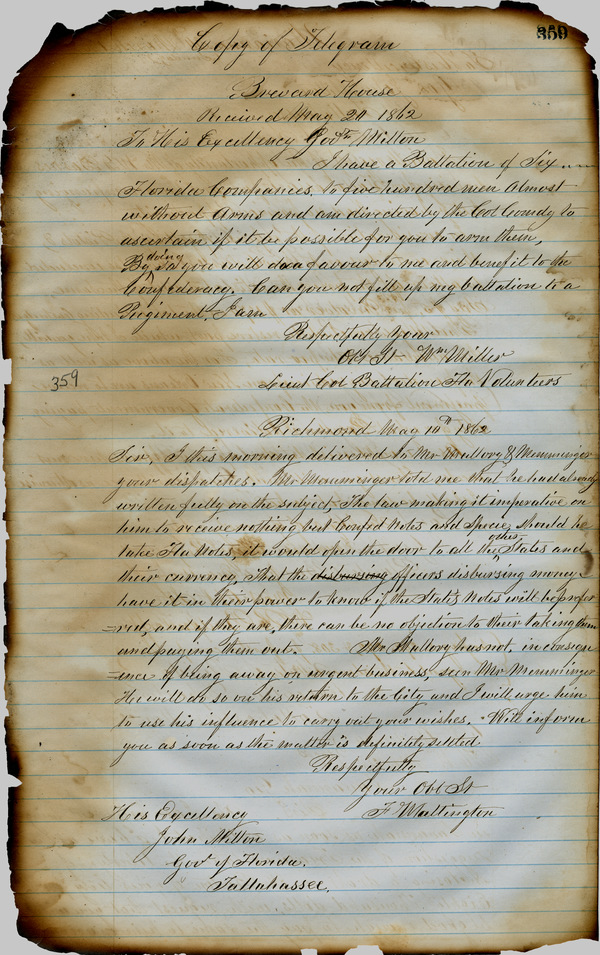 359
Copy of Telegram
Brevard House
Received May 20 1862
To His Excellency Govr Milton
I have a Battalion of Six
Florida Companies, to five hundred men almost
without Arms and am directed by the Col Comdg to
ascertain if it be possible for you to arm them,
By doing so you will do a favour to me and benefit to the
Confederacy. Can you not fill up my battalion to a
Regiment, I am
Respectfully your
Obt St Wm Miller
359
Lieut Col Battalion Fla Volunteers
Richmond May 10th 1862
Sir, I this morning delivered to Mr Mallory & Memminger
your dispatches. Mr Memminger told me that he had already
written fully on the subject, The law making it imperative on
him to receive nothing but Confed Notes and Specie, should he
take Fla Notes, it would open the door to all the other States and
their currency, That the disbursing officers disbursing money
have it in their power to know if the State's Notes will be prefer
=red, and if they are, there can be no objection to their taking them
and paying them out. Mr Mallory has not, in consequ
=ence of being away on urgent business, seen Mr Memminger
He will do so on his return to the City and I will urge him
to use his influence to carry out your wishes. Will inform
you as soon as the matter is definitely settled
Respectfully
Your Obt St
His Excellency
John Milton
Govr of Florida.
Tallahassee.